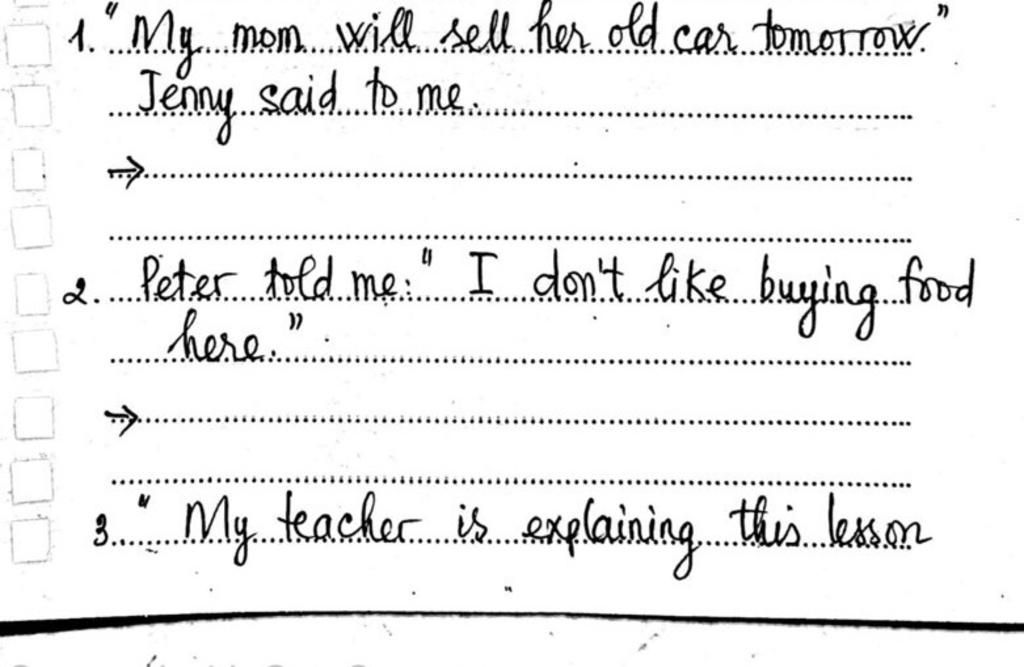 1. "My mom will sell her old car tomorrow."
Jenny said to me.
→
2. Peter told me: "I don't like buying food
here."
→
3. "My teacher is explaining this lesson